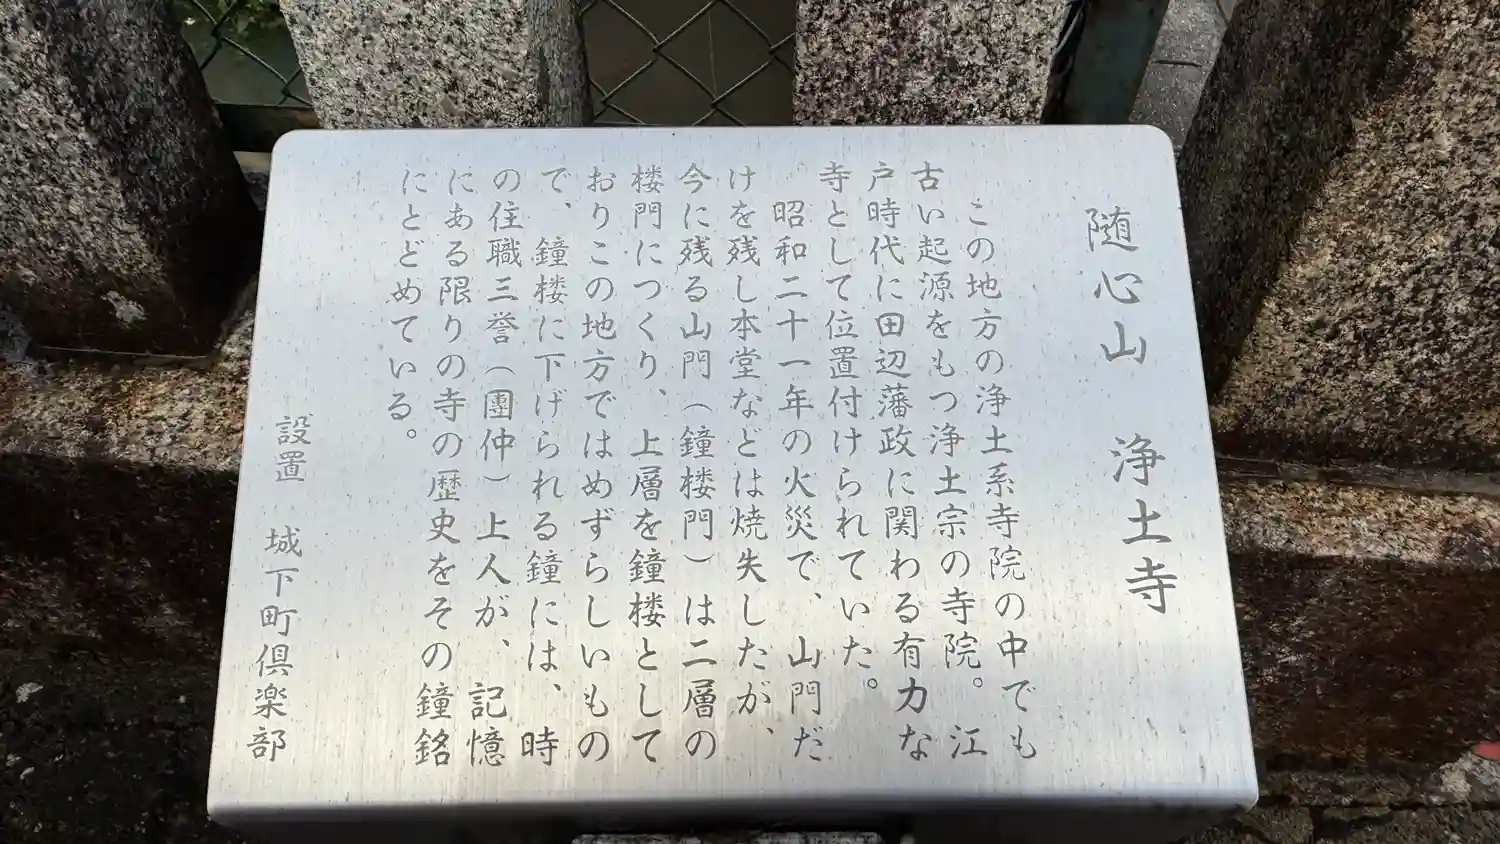 随心山　浄土寺
この地方の浄土系寺院の中でも
古い起源をもつ浄土宗の寺院。江
戸時代に田辺藩政に関わる有力な
寺として位置付けられていた。
昭和二十一年の火災で、山門だ
けを残し本堂などは焼失したが、
今に残る山門（鐘楼門）は二層の
楼門につくり、上層を鐘楼として
おりこの地方ではめずらしいもの
で、鐘楼に下げられる鐘には、時
の住職三誉（團仲）上人が、記憶
にある限りの寺の歴史をその鐘銘
にとどめている。
設置　城下町倶楽部